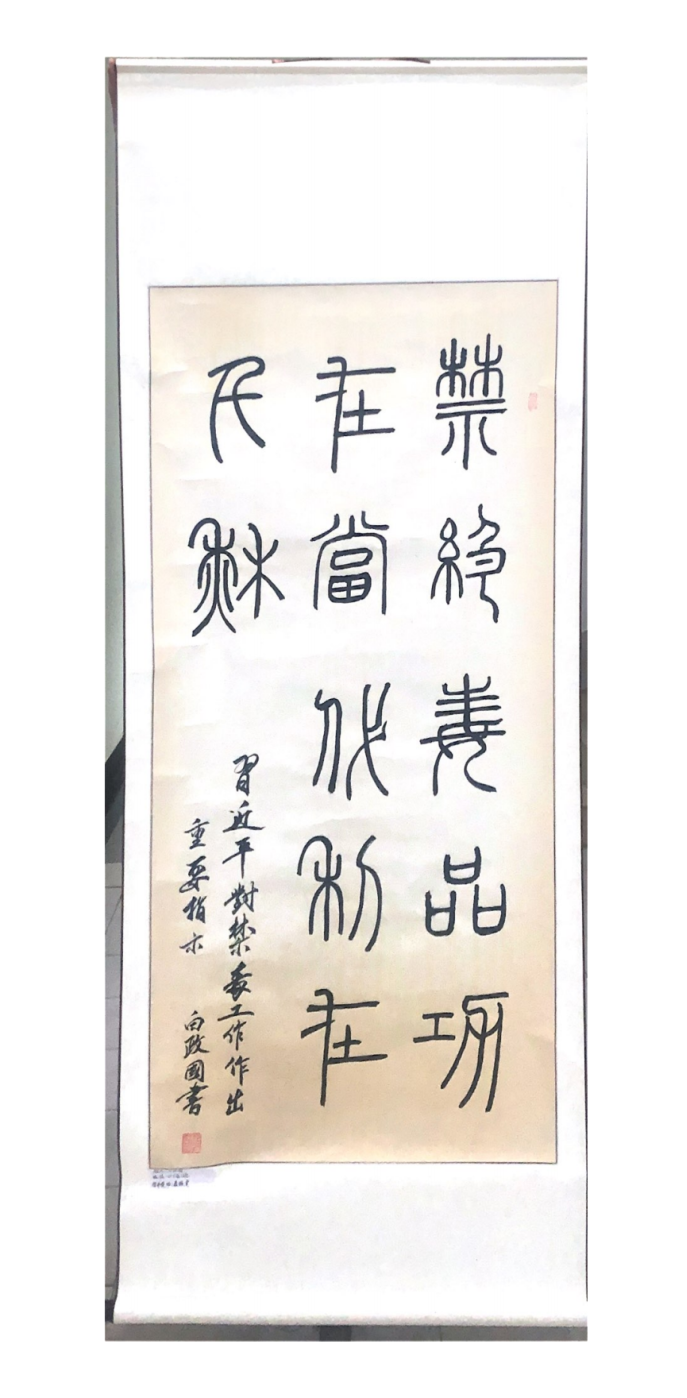 禁絕毒品功
在當代利在
千秋
習近平對禁毒工作作出
重要指示
白政國書